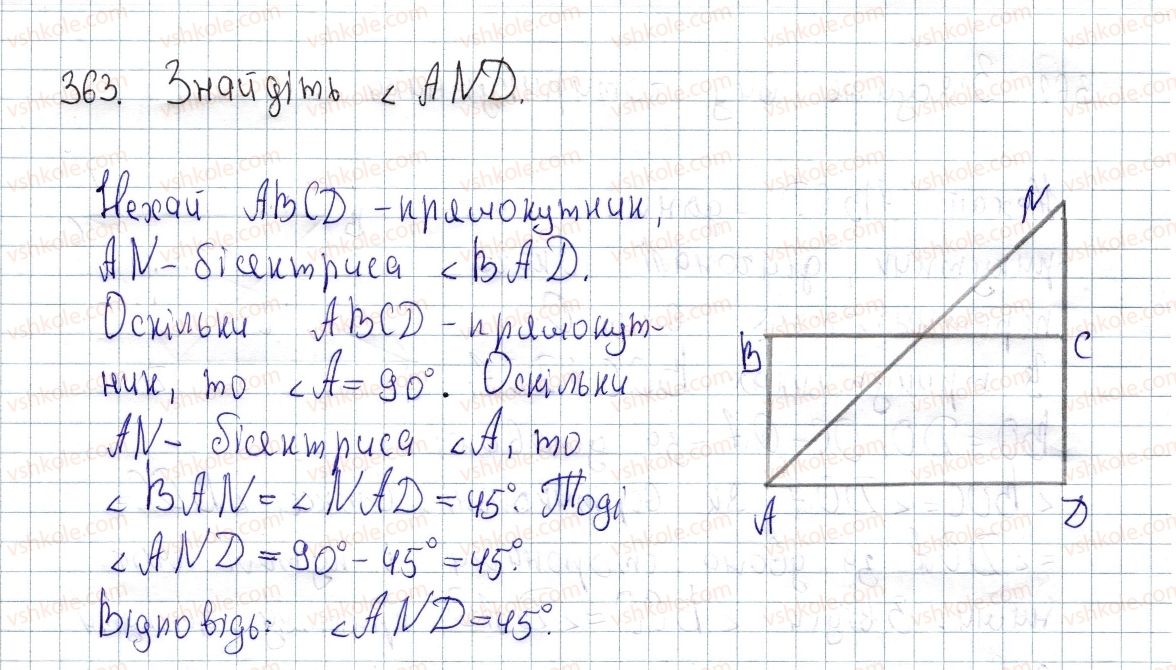 363. Знайдіть ∠AND.
Нехай ABCD - прямокутник,
AN - бісектриса ∠BAD.
Оскільки ABCD - прямокут-
ник, то ∠A = 90°. Оскільки
AN - бісектриса ∠A, то
∠BAN = ∠NAD = 45°. Тоді
∠AND = 90° - 45° = 45°.
Відповідь: ∠AND = 45°.
N
B
C
A
D
vshkole.com